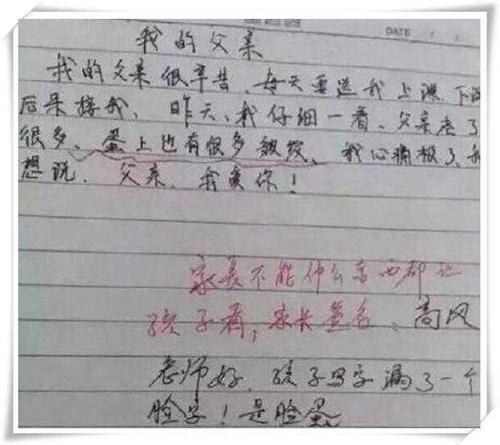 DATE
我的父亲
我的父亲很辛苦，每天要送我上课，下课
后来接我，昨天，我仔细一看，父亲老了
很多，蛋上也有很多皱纹，我心痛极了，我
想说，父亲，我爱你！
家长不能什么东西都让
孩子看，家长签名：高风
老师好，孩子写字漏了一个
脸字！是脸蛋